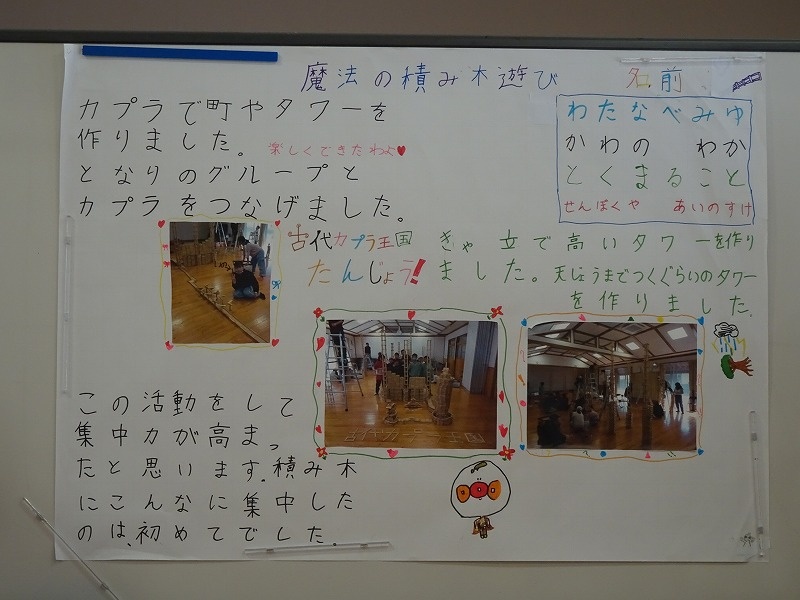 魔法の積み木遊び
名前
わたなべみゆ
かわの わか
とくまること
せんぼくや あいのすけ
カプラで町やタワーを
作りました。
楽しくできたわよ♥
となりのグループと
カプラをつなげました。
古代カプラ王国
たんじょう!
きゃ立で高いタワーを作り
ました。天じょうまでつくぐらいのタワー
を作りました。
古代カプラ王国
この活動をして
集中力が高まっ
たと思います。積み木
にこんなに集中した
のは、初めてでした。